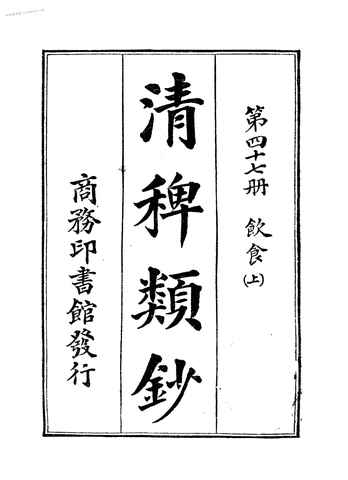 第四十七册 飲食(上)
清稗類鈔
商務印書館發行